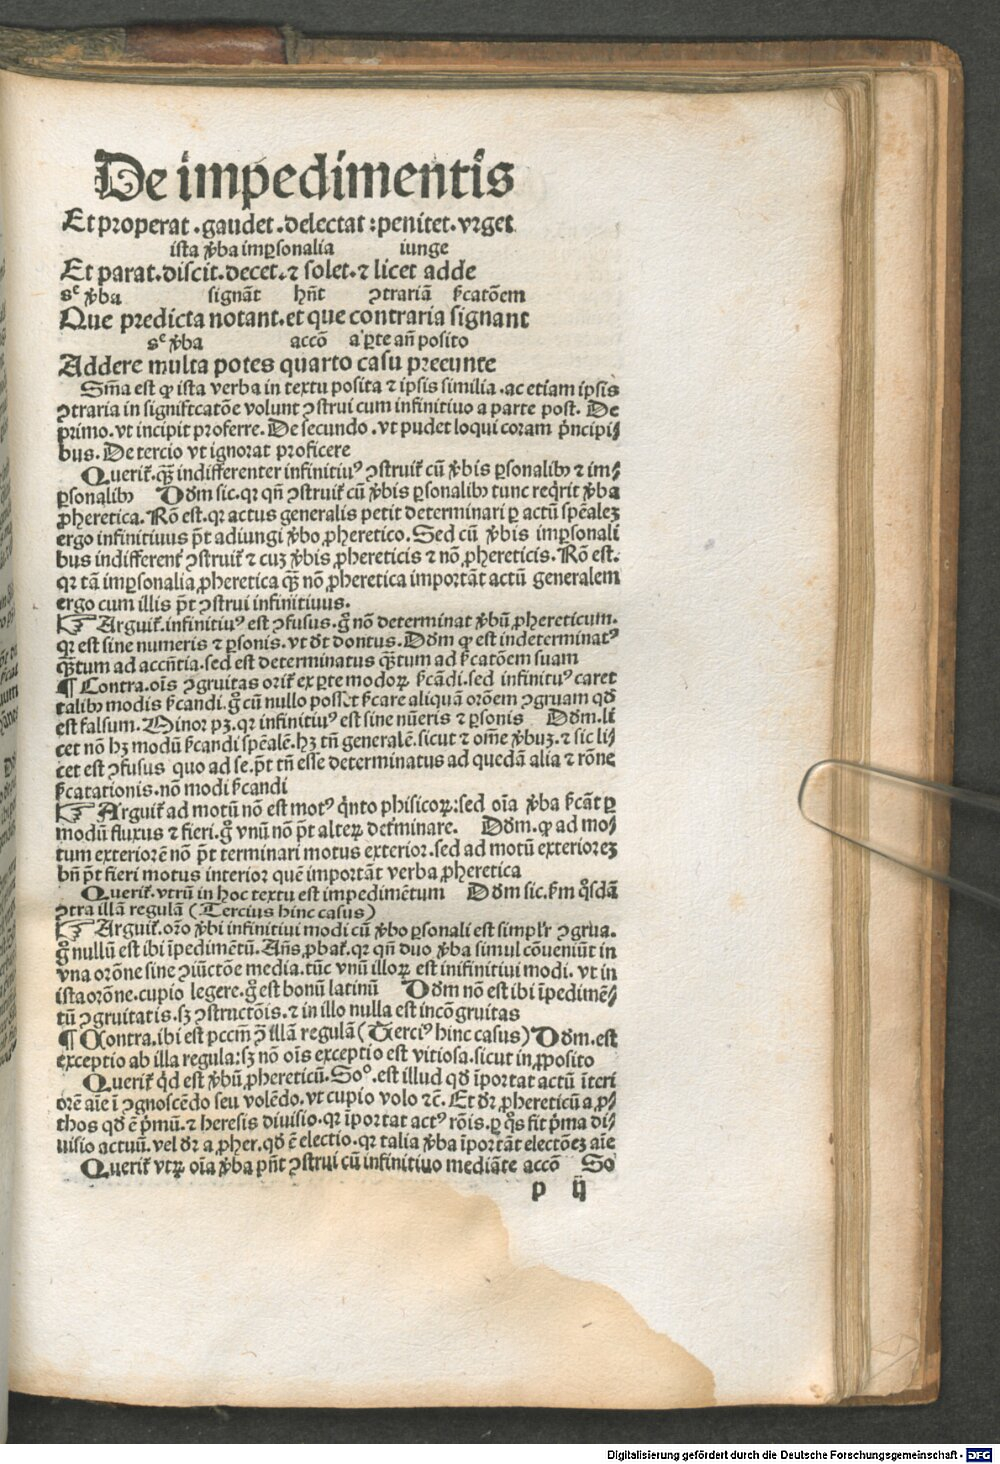 De impedimentis
Et properat .gaudet .delectat : penitet. vrget
ista v̄ba imꝑsonalia iunge
Et parat .discit .decet. ⁊ solet. ⁊ licet adde
sᶜ v̄ba signāt hn̄t ꝯtrariā s̄catōem
Que predicta notant. et que contraria signant
sᶜ v̄ba accō a ꝑte an̄ posito
Addere multa potes quarto casu preeunte
Sm̄a est ꝙ ista verba in textu posita ⁊ ipsis similia .ac etiam ipsis
ꝯtraria in significatōe volunt ꝯstrui cum infinitiuo a parte post. De
primo. vt incipit proferre. De secundo .vt pudet loqui coram p̄ncipi⸗
bus. De tercio vt ignorat proficere
Querit̄. qꝫ indifferenter infinitiuꝰ ꝯstruit̄ cū v̄bis ꝑsonalibꝫ ⁊ im⸗
ꝑsonalibꝫ Dd̄m sic. qꝛ qn̄ ꝯstruit̄ cū v̄bis ꝑsonalibꝫ tunc reqͥrit v̄ba
ꝓheretica. Rō est. qꝛ actus generalis petit determinari ꝑ actū spēaleꝫ
ergo infinitiuus pn̄t adiungi v̄bo ꝓheretico. Sed cū v̄bis imꝑsonali
bus indifferent̄ ꝯstruit̄ ⁊ cuꝫ v̄bis ꝓhereticis ⁊ nō ꝓhereticis. Rō est.
qꝛ tā imꝑsonalia ꝓheretica qꝫ nō ꝓheretica importāt actū generalem
ergo cum illis pn̄t ꝯstrui infinitiuus.
☞ Arguit̄. infinitiuꝰ est ꝯfusus. gͦ nō determinat v̄bū ꝓhereticum.
qꝛ est sine numeris ⁊ ꝑsonis. vt dt̄ dontus. Dd̄m ꝙ est indeterminatꝰ
qꝫtum ad accn̄tia. sed est determinatus qꝫtum ad s̄catōem suam
¶ Contra. oīs ꝯgruitas orit̄ ex ꝑte modoꝝ s̄cādi. sed infinituꝰ caret
talibꝫ modis s̄candi. gͦ cū nullo posset s̄care aliquā orōem ꝯgruam qd̄
est falsum. Minor pꝫ. qꝛ infinitiuꝰ est sine nūeris ⁊ ꝑsonis Dd̄m. li⸗
cet nō hꝫ modū s̄candi spēalē. hꝫ tn̄ generalē. sicut ⁊ om̄e v̄buꝫ. ⁊ sic li⸗
cet est ꝯfusus quo ad se. pn̄t tn̄ esse determinatus ad quedā alia ⁊ rōne
s̄catationis. nō modi s̄candi
☞ Arguit̄ ad motū nō est motꝰ qͥnto phisicoꝝ: sed oīa v̄ba s̄cāt ꝑ
modū fluxus ⁊ fieri. gͦ vnū nō pn̄t alteꝝ det̄minare. Dd̄m. ꝙ ad mo⸗
tum exteriorē nō pn̄t terminari motus exterior. sed ad motū exterioreꝫ
bn̄ pn̄t fieri motus interior quē importāt verba ꝓheretica
Querit̄. vtrū in hoc textu est impedimētum Dd̄m sic. s̄m qͦsdā
ꝯtra illā regulā ( Tercius hinc casus )
☞ Arguit̄. oro v̄bi infinitiui modi cū v̄bo ꝑsonali est simplr̄ ꝯgrua.
gͦ nullū est ibi īpedimētū. An̄s ꝓbat̄. qꝛ qn̄ duo v̄ba simul cōueniūt in
vna orōne sine ꝯiūctōe media. tūc vnū illoꝝ est inifinitiui modi. vt in
ista orōne. cupio legere. gͦ est bonū latinū Dd̄m nō est ibi īpedimē⸗
tū ꝯgruitatis. sꝫ ꝯstructōis. ⁊ in illo nulla est incōgruitas
¶ Contra. ibi est pccm̄ ꝯ̄ illā regulā ( Terciꝰ hinc casus ) Dd̄m. est
exceptio ab illa regula: sꝫ nō oīs exceptio est vitiosa. sicut in ꝓposito
Querit̄ qͥd est v̄bū ꝓhereticū. Soͦ. est illud qd̄ īportat actū īteri
orē aīe ī ꝯgnoscēdo seu volēdo. vt cupio volo ⁊c̄. Et dr̄ ꝓhereticū a ꝓ⸗
thos qd̄ ē p̄mū. ⁊ heresis diuisio. qꝛ īportat actꝰ rōis. ꝑ qͦs fit p̄ma di⸗
uisio actuū. vel dr̄ a ꝓher. qd̄ ē electio. qꝛ talia v̄ba īportāt electōeꝫ aīe
Querit̄ vtꝝ oīa v̄ba pn̄t ꝯstrui cū infinitiuo mediāte accō So
p ij
Digitalisierung gefördert durch die Deutsche Forschungsgemeinschaft - DFG